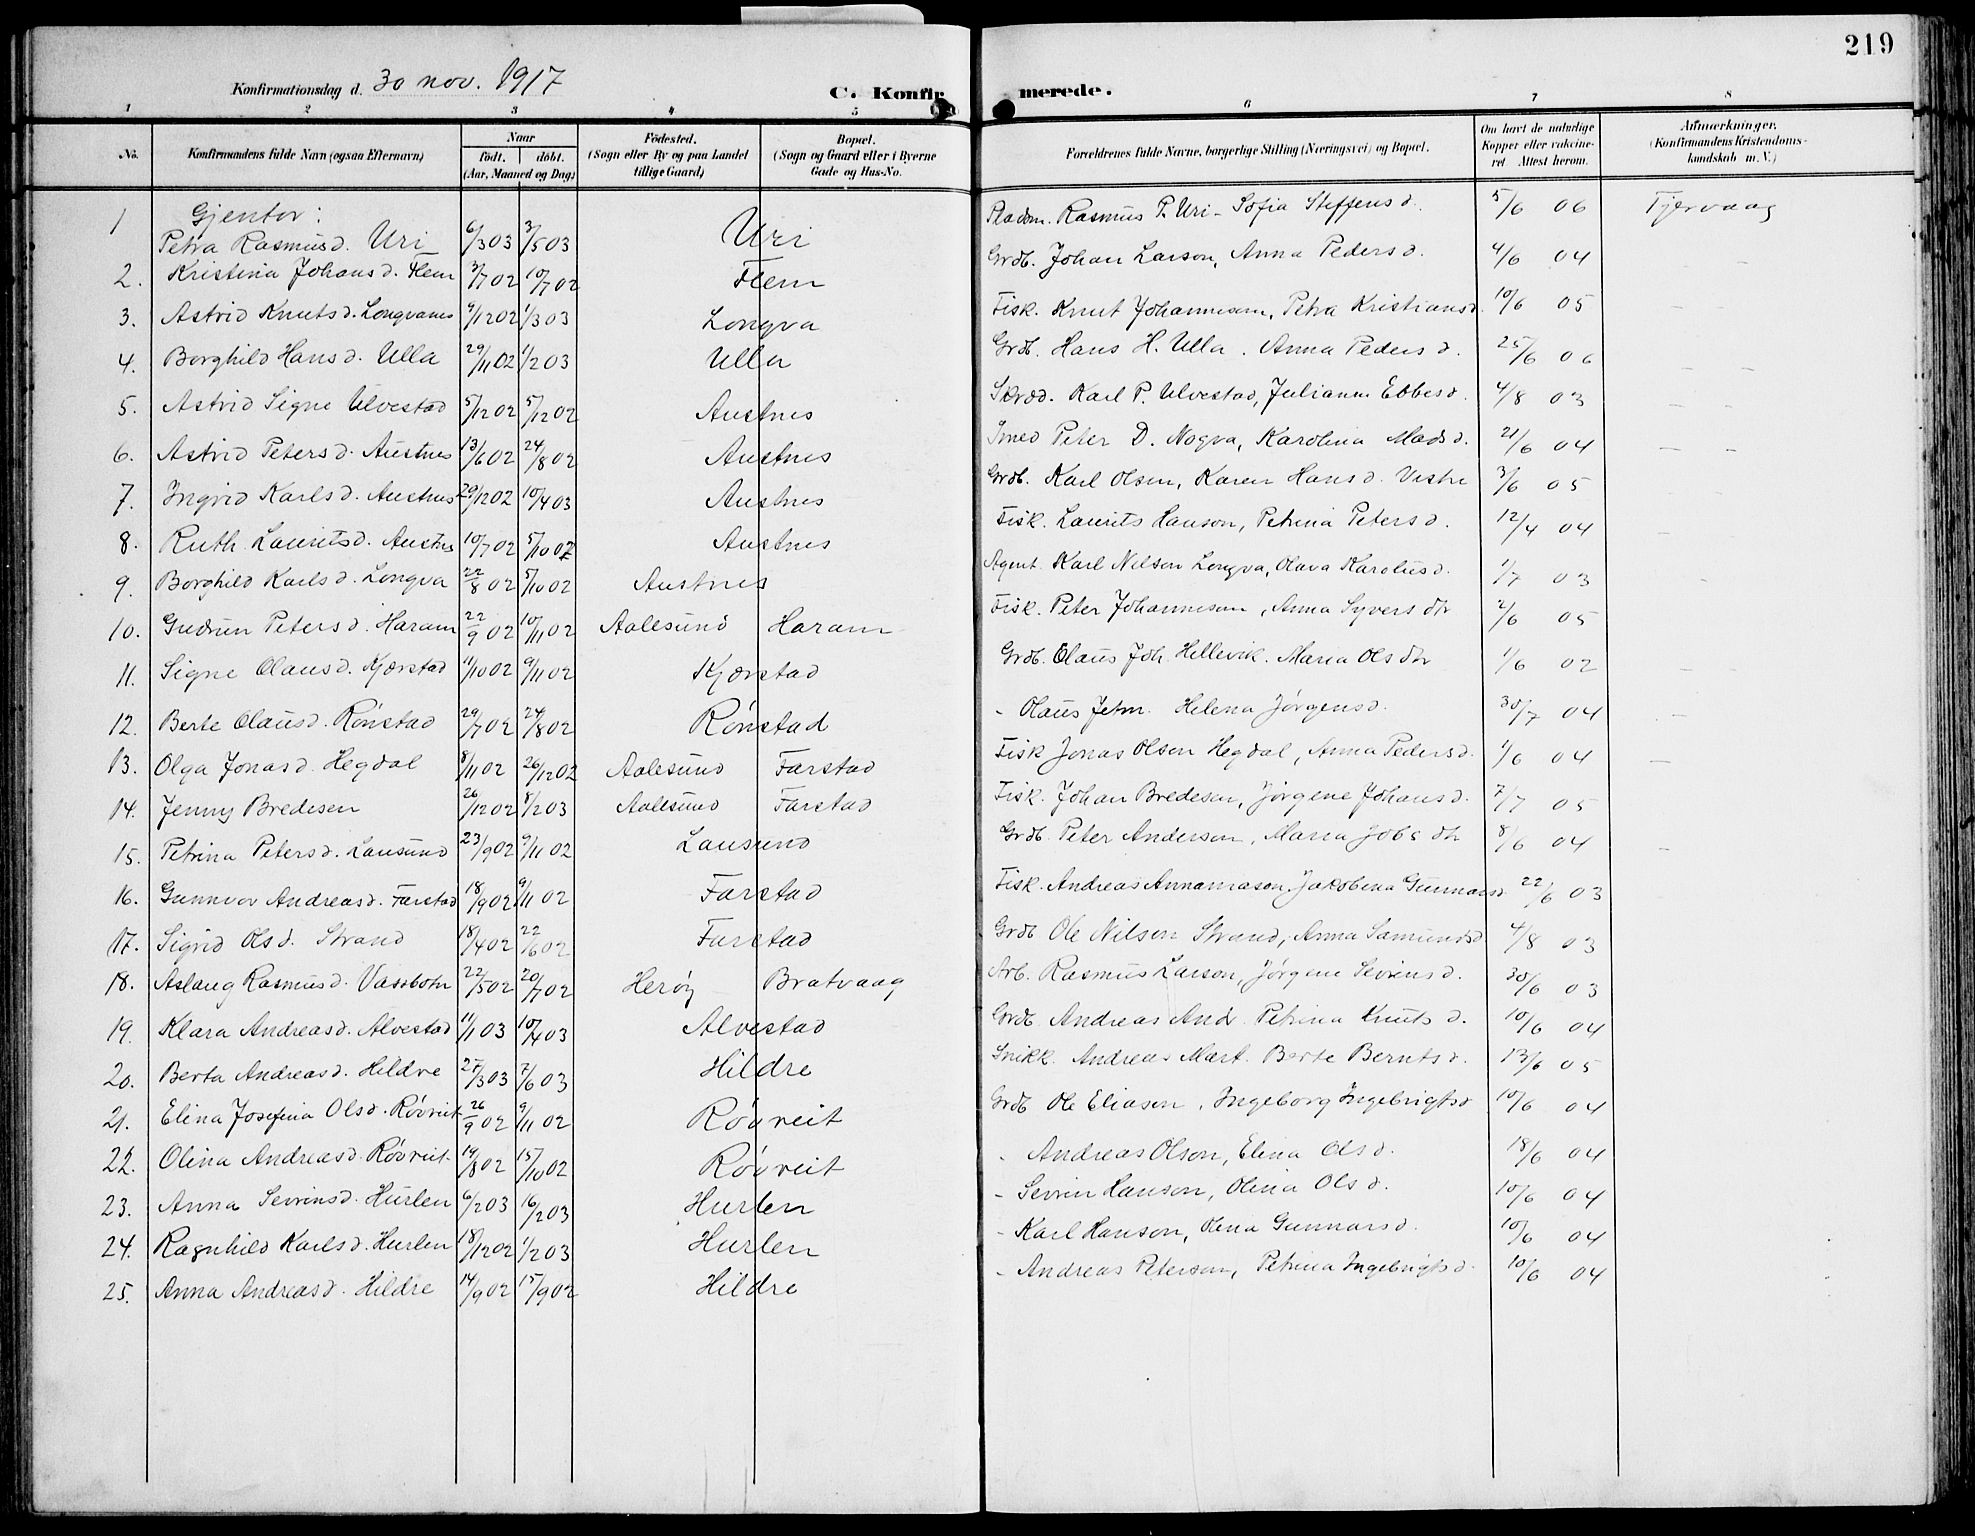 219
Konfirmationsdag d. 30 nov. 1917
C. Konfir merede.
1 2 3 4 5 6 7 8
No. Konfirmandens fulde Navn (ogsaa Efternavn) Naar født. døbt. (Aar, Maaned og Dag) Fødested. (Sogn eller By og paa Landet tillige Gaard) Bopæl. (Sogn og Gaard eller i Byerne Gade og Hus-No. Forældrenes fulde Navne, borgerlige Stilling (Næringsvei) og Bopæl. Om havt de naturlige Kopper eller vakcineret. Attest herom. Anmærkninger. (Konfirmandens Kristendomskundskab m. V.)
Gjentor:
1 Petra Rasmusd. Uri 6/3 03 3/5 03 Uri Pladsm. Rasmus P. Uri - Sofia Steffensd. 5/6 06 Fjervaag
2. Kristina Johansd. Flem 3/7 02 10/7 02 Flem Grdb. Johan Larson, Anna Pedersd. 4/6 04
3. Astrid Knutsd. Longvanes 9/12 02 1/3 03 Longva Fisk. Knut Johannesen, Petra Kristiansd. 10/6 05
4. Borghild Hansd. Ulla 29/11 02 1/2 03 Ulla Grdb. Hans H. Ulla. Anna Pedersd. 25/6 06
5. Astrid Signe Ulvestad 5/12 02 5/12 02 Austnes Skræd. Karl P. Ulvestad, Julianna Ebbesd. 4/8 03
6. Astrid Petersd. Austnes 13/6 02 24/8 02 Austnes Smed Peter D. Nogva, Karolina Madsd. 21/6 04
7. Ingrid Karlsd. Austnes 29/12 02 10/4 03 Austnes Grdb. Karl Olsen, Karen Hansd. Vestre 3/6 05
8. Ruth Lauritsd. Austnes 10/7 02 5/10 02 Austnes Fisk. Laurits Hanson, Petrina Petersd. 12/4 04
9. Borghild Karlsd. Longva 22/8 02 5/10 02 Austnes Agent. Karl Nelson Longva, Olava Karolusd. 1/7 03
10. Gudrun Petersd. Haram 22/9 02 10/11 02 Aalesund Haram Fisk. Peter Johannesen, Anna Syvers dtr 2/6 05
11. Signe Olausd. Kjærstad 11/10 02 9/11 02 Kjærstad Grdb. Olaus Joh. Hellevik. Maria Ols dtr 1/6 02
12. Berte Olausd. Rønstad 29/7 02 24/8 02 Rønstad - Olaus Jetm. Helena Jørgensd. 30/7 04
13. Olga Jonasd. Hegdal 8/11 02 26/12 02 Aalesund Farstad Fisk Jonas Olson Hegdal, Anna Pedersd. 1/6 04
14. Jenny Bredesen 26/12 02 8/2 03 Aalesund Farstad Fisk. Johan Bredesen, Jørgene Johansd. 7/7 05
15. Petrina Petersd. Lausund 23/9 02 9/11 02 Lausund Grdb. Peter Anderson, Maria Jobs dtr 8/6 04
16. Gunnvor Andreasd. Farstad 18/9 02 9/11 02 Farstad Fisk. Andreas Annaniason, Jakobina Gunnarsd 22/6 03
17. Sigrid Olsd. Strand 18/4 02 22/6 02 Farstad Grdb Ole Nilsen Strand, Anna Samundsd 4/8 03
18. Aslaug Rasmusd. Vassbotn 22/5 02 20/7 02 Herøy Bratvaag Arb. Rasmus Larson, Jørgene Sevrinsd. 30/6 03
19. Klara Andreasd. Alvestad 11/1 03 10/4 03 Alvestad Grdb. Andreas And. Petrina Knutsd. 10/6 04
20. Berta Andreasd. Hildre 27/3 03 7/6 03 Hildre Snikk. Andreas Mart. Berte Berntsd. 13/6 05
21. Elina Josefina Olsd. Røvreit 26/9 02 9/11 02 Røvreit Grdb Ole Eliasen, Ingeborg Ingebrigtsd 10/6 04
22. Olina Andreasd. Røvreit 19/8 02 15/10 02 Røvreit - Andreas Olson, Elina Olsd. 18/6 04
23. Anna Sevrinsd. Hurlen 6/2 03 16/2 03 Hurlen - Sevrin Hanson, Olina Olsd. 10/6 04
24. Ragnhild Karlsd. Hurlen 18/12 02 1/2 03 Hurlen - Karl Hanson, Olina Gunnarsd. 10/6 04
25. Anna Andreasd. Hildre 14/9 02 15/9 02 Hildre - Andreas Peterson, Petrina Ingebrigtsd. 10/6 04